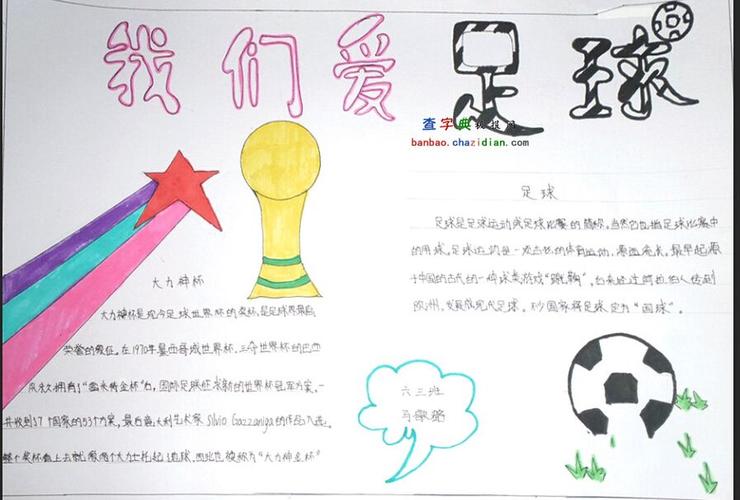 我们爱足球
查字典教报网
banbao.chazidian.com
足球
足球是足球运动或足球比赛的简称,当然它也指足球比赛中
的用球。足球运动是一项古老的体育运动,源远流长。最早起源
于中国的古代的一种球类游戏“蹴鞠”,后来经过阿拉伯人传到
欧洲,发展成现代足球。不少国家将足球定为“国球”。
大力神杯
大力神杯是现今足球世界杯的奖杯,是足球界最高
荣誉的象征。在1970年墨西哥城世界杯,三夺世界杯的巴西
队永久拥有了“雷米特金杯”后,国际足联征求新的世界杯冠军方案,一
共收到17个国家的53个方案,最后意大利艺术家Silvio Gazzaniga的作品入选。
整个奖杯看上去就像两个大力士托起地球,因此也被称为“大力神金杯”
六三班